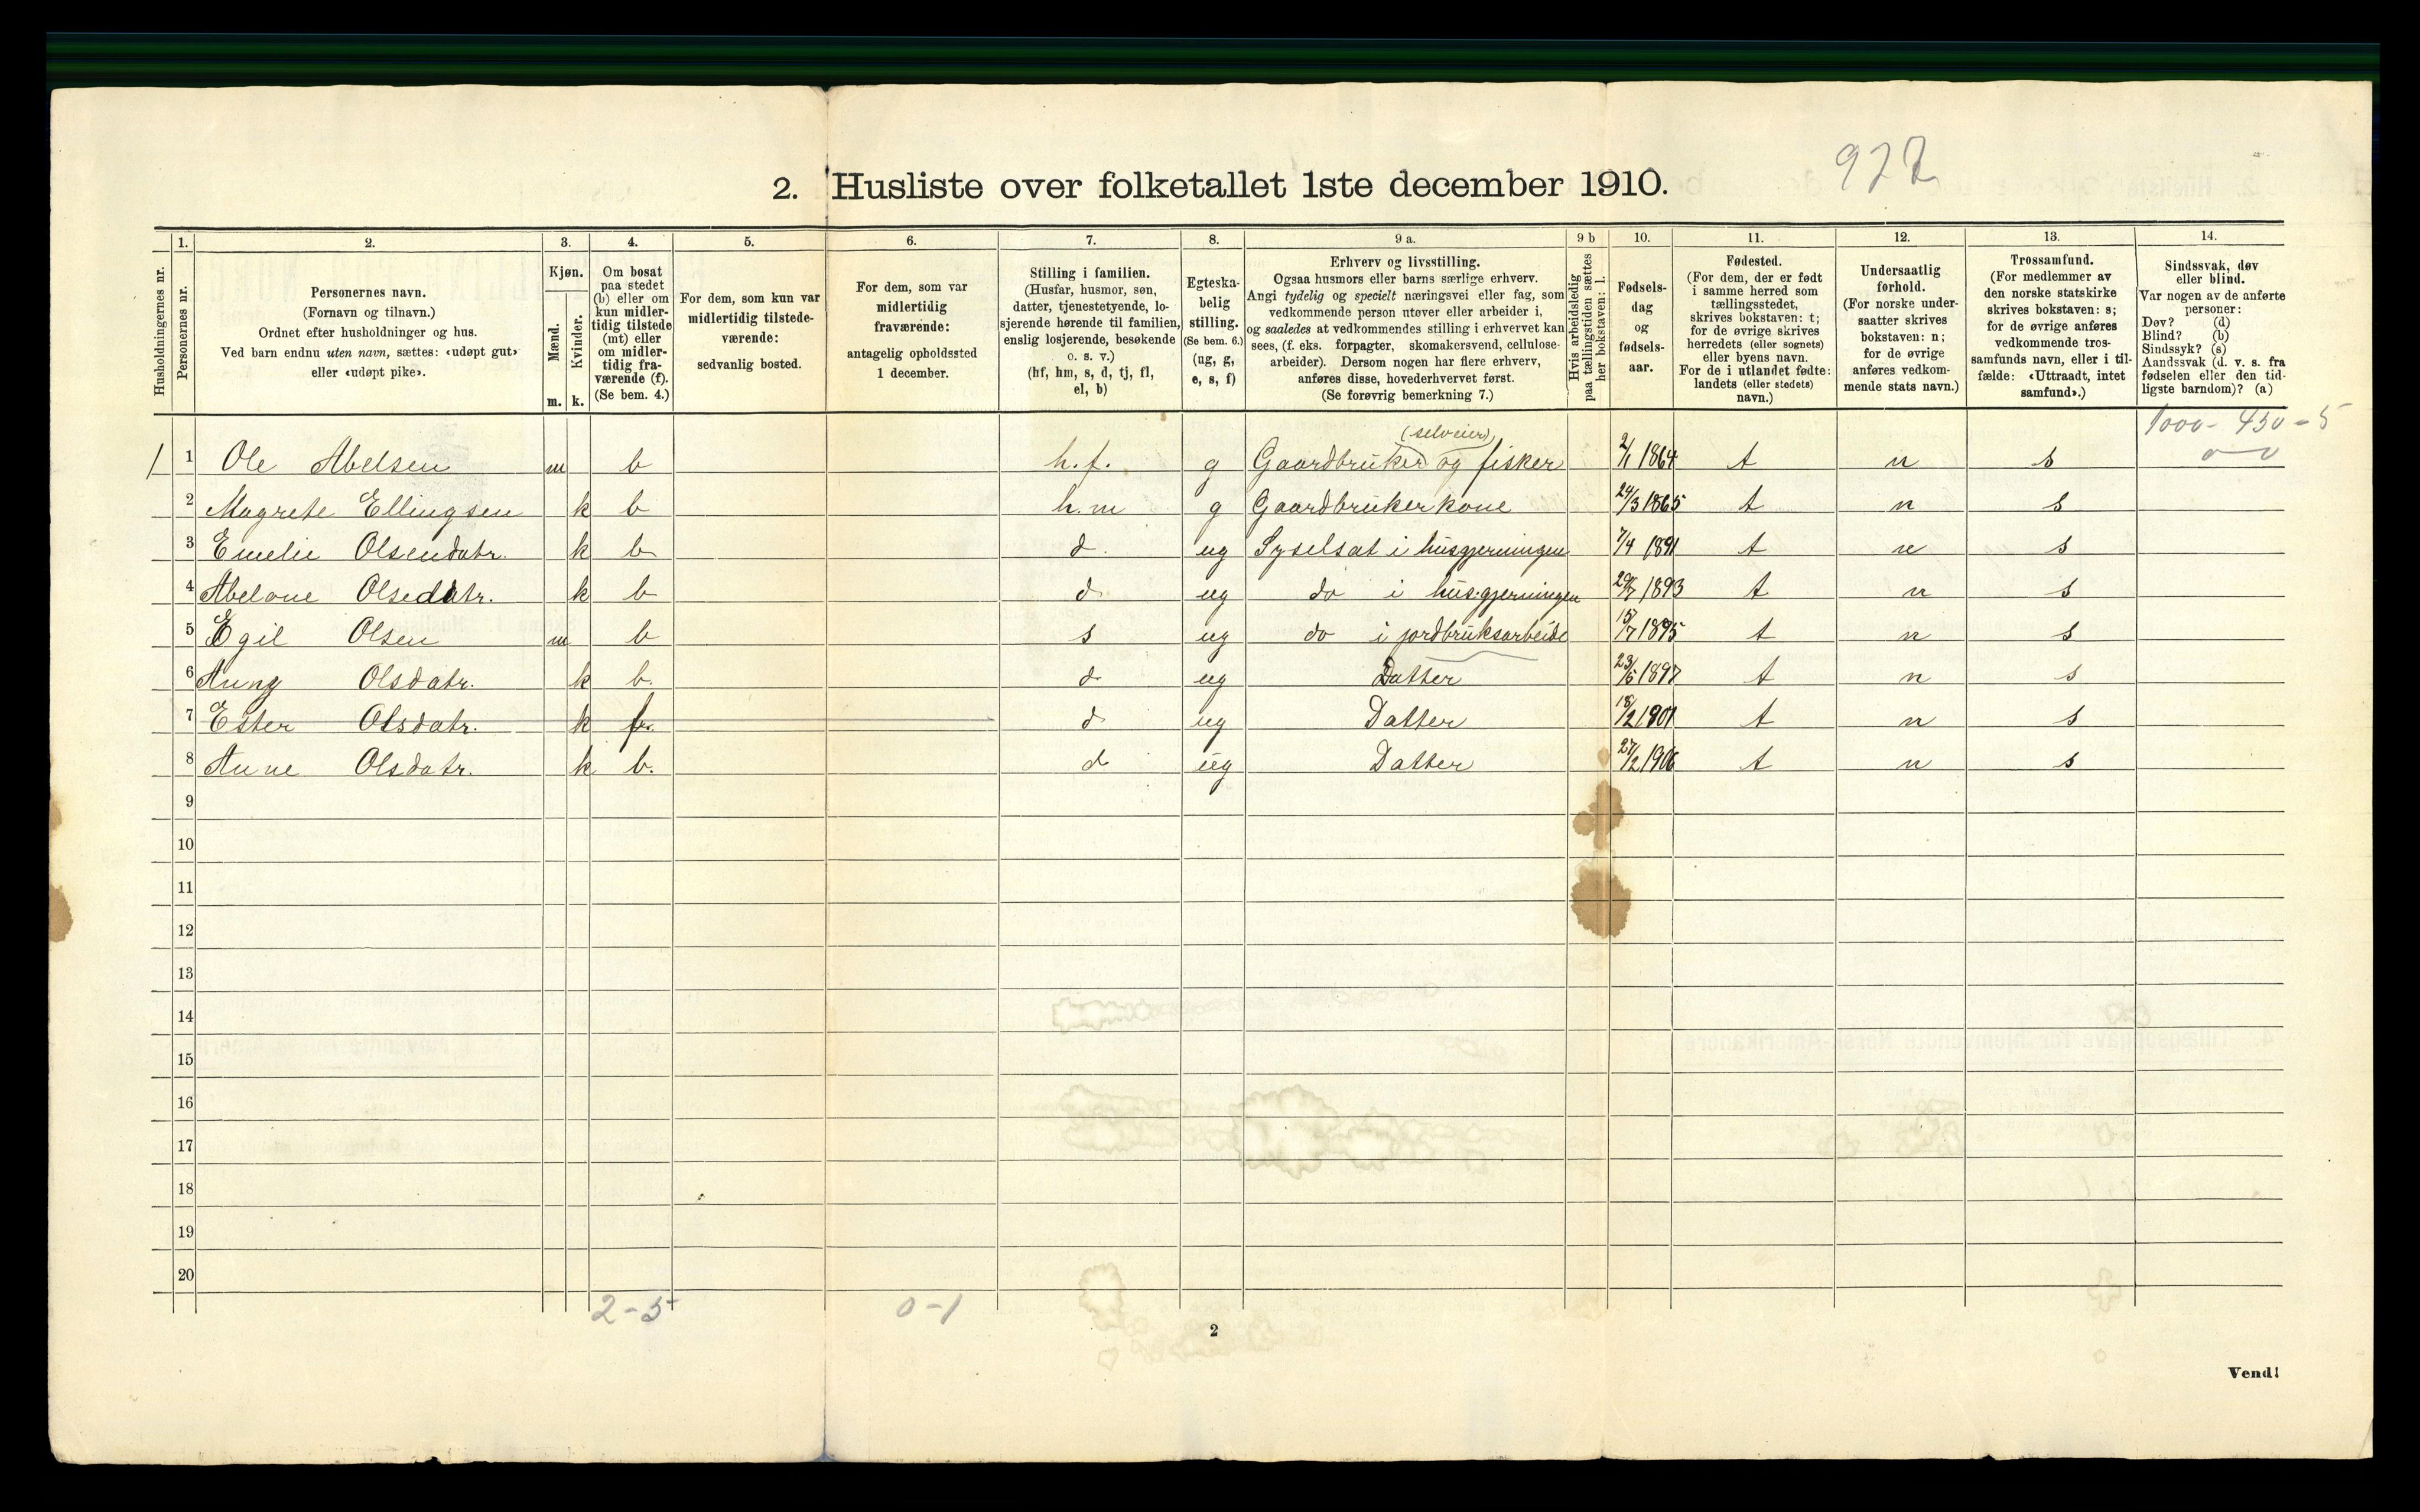 922
2. Husliste over folketallet 1ste december 1910.
Husholdningernes nr.
1. Personernes nr.
2. Personernes navn.
(Fornavn og tilnavn.)
Ordnet efter husholdninger og hus.
Ved barn endnu uten navn, sættes: «udøpt gut»
eller «udøpt pike».
3. Kjøn.
Mænd. m.
Kvinder. k.
4. Om bosat
paa stedet
(b) eller om
kun midler-
tidig tilstede
(mt) eller
om midler-
tidig fra-
værende (f).
(Se bem. 4.)
5. For dem, som kun var
midlertidig tilstede-
værende:
sedvanlig bosted.
6. For dem, som var
midlertidig
fraværende:
antagelig opholdssted
1 december.
7. Stilling i familien.
(Husfar, husmor, søn,
datter, tjenestetyende, lo-
sjerende hørende til familien,
enslig losjerende, besøkende
o. s. v.)
(hf, hm, s, d, tj, fl,
el, b)
8. Egteska-
belig
stilling.
(Se bem. 6.)
(ug, g,
e, s, f)
9 a. Erhverv og livsstilling.
Ogsaa husmors eller barns særlige erhverv.
Angi tydelig og specielt næringsvei eller fag, som
vedkommende person utøver eller arbeider i,
og saaledes at vedkommendes stilling i erhvervet kan
sees, (f. eks. forpagter, skomakersvend, cellulose-
arbeider). Dersom nogen har flere erhverv,
anføres disse, hovederhvervet først.
(Se forøvrig bemerkning 7.)
9 b Hvis arbeidsledig
paa tællingstiden sættes
her bokstaven: l.
10. Fødsels-
dag
og
fødsels-
aar.
11. Fødested.
(For dem, der er født
i samme herred som
tællingsstedet,
skrives bokstaven: t;
for de øvrige skrives
herredets (eller sognets)
eller byens navn.
For de i utlandet fødte:
landets (eller stedets)
navn.)
12. Undersaatlig
forhold.
(For norske under-
saatter skrives
bokstaven: n;
for de øvrige
anføres vedkom-
mende stats navn.)
13. Trossamfund.
(For medlemmer av
den norske statskirke
skrives bokstaven: s;
for de øvrige anføres
vedkommende tros-
samfunds navn, eller i til-
fælde: «Uttraadt, intet
samfund».)
14. Sindssvak, døv
eller blind.
Var nogen av de anførte
personer:
Døv? (d)
Blind? (b)
Sindssyk? (s)
Aandssvak (d. v. s. fra
fødselen eller den tid-
ligste barndom)? (a)
1000 - 450 - 5
0 - 0
(selveier)
1 1 Ole Abelsen m b h.f. g Gaardbruker og fisker 2/1 1864 t n s
2 Magrete Ellingsen k b h.m g Gaardbrukerkone 24/3 1865 t n s
3 Emelie Olsendatr. k b d. ug Syselsat i husgjerningen 7/4 1891 t n s
4 Abelone Olsedatr. k b d ug do i husgjerningen 1893 t n s
5 Egil Olsen m b s ug do i jordbruksarbeide 15/7 1895 t n s
6 Auny Olsdatr. k b. d ug Datter 23/5 1897 t n s
7 Ester Olsdatr. k f. d ug Datter 18/2 1901 t n s
8 Anne Olsdatr. k b. d ug Datter 27/2 1906 t n s
9
10
11
12
13
14
15
16
17
18
19
20
2 - 5 0 - 1
2
Vend!